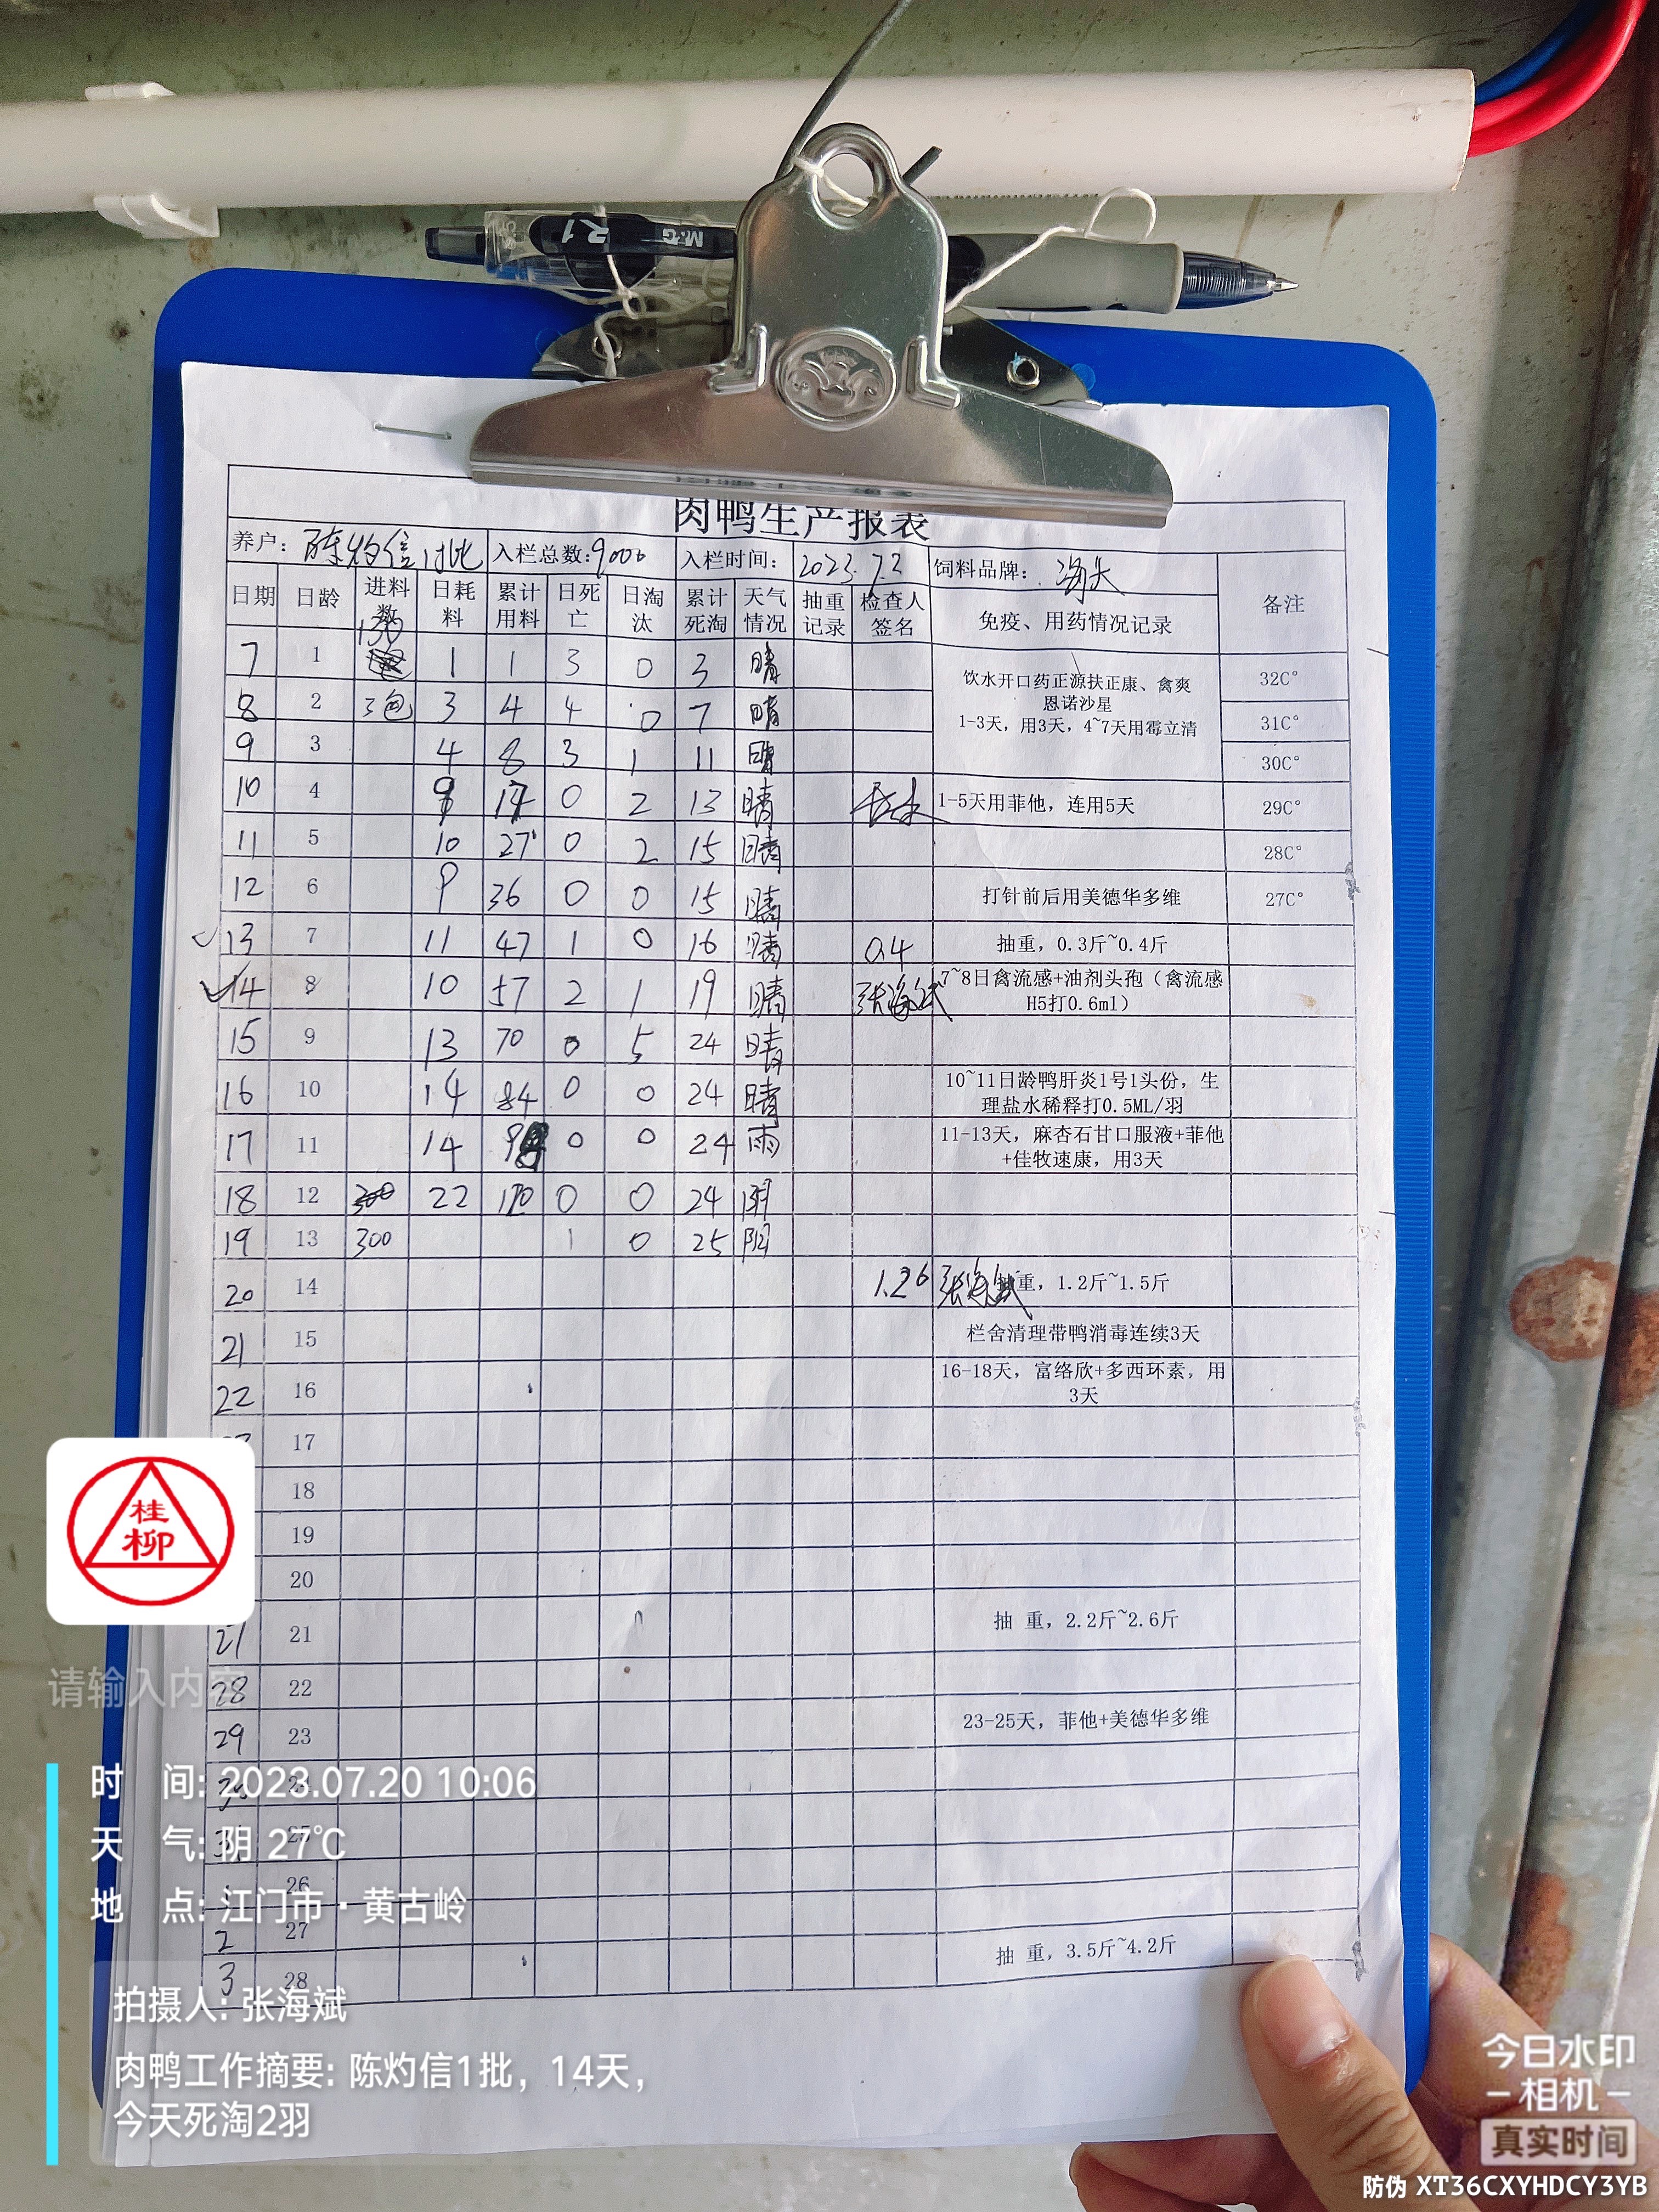 M&G
R1
肉鸭生产报表
养户: 陈灼信1批 入栏总数: 9000 入栏时间: 2023.7.2 饲料品牌: 海大
日期 日龄 进料数 日耗料 累计用料 日死亡 日淘汰 累计死淘 天气情况 抽重记录 检查人签名 免疫、用药情况记录 备注
7 1 130 1 1 3 0 3 晴 32C°
饮水开口药正源扶正康、禽爽
恩诺沙星
1-3天, 用3天, 4~7天用霉立清
8 2 3包 3 4 4 0 7 晴 31C°
9 3 4 8 3 1 11 晴 30C°
10 4 9 17 0 2 13 晴 1-5天用菲他, 连用5天 29C°
11 5 10 27 0 2 15 晴 28C°
12 6 9 36 0 0 15 晴 打针前后用美德华多维 27C°
13 7 11 47 1 0 16 晴 0.4 抽重, 0.3斤~0.4斤
14 8 10 57 2 1 19 晴 张海斌 7~8日禽流感+油剂头孢（禽流感
H5打0.6ml）
15 9 13 70 0 5 24 晴
16 10 14 84 0 0 24 晴 10~11日龄鸭肝炎1号1头份, 生
理盐水稀释打0.5ML/羽
17 11 14 0 0 24 雨 11-13天, 麻杏石甘口服液+菲他
+佳牧速康, 用3天
18 12 300 22 0 0 24 阴
19 13 300 1 0 25 阴
20 14 1.26 张海斌 重, 1.2斤~1.5斤
21 15 栏舍清理带鸭消毒连续3天
22 16 16-18天, 富络欣+多西环素, 用
3天
17
18
19
20
27 21 抽 重, 2.2斤~2.6斤
28 22
29 23 23-25天, 菲他+美德华多维
30 24
31 25
1 26
2 27
3 28 抽 重, 3.5斤~4.2斤
桂
柳
请输入内容
时 间: 2023.07.20 10:06
天 气: 阴 27℃
地 点: 江门市·黄古岭
拍摄人: 张海斌
肉鸭工作摘要: 陈灼信1批, 14天,
今天死淘2羽
今日水印
-相机-
真实时间
防伪 XT36CXYHDCY3YB